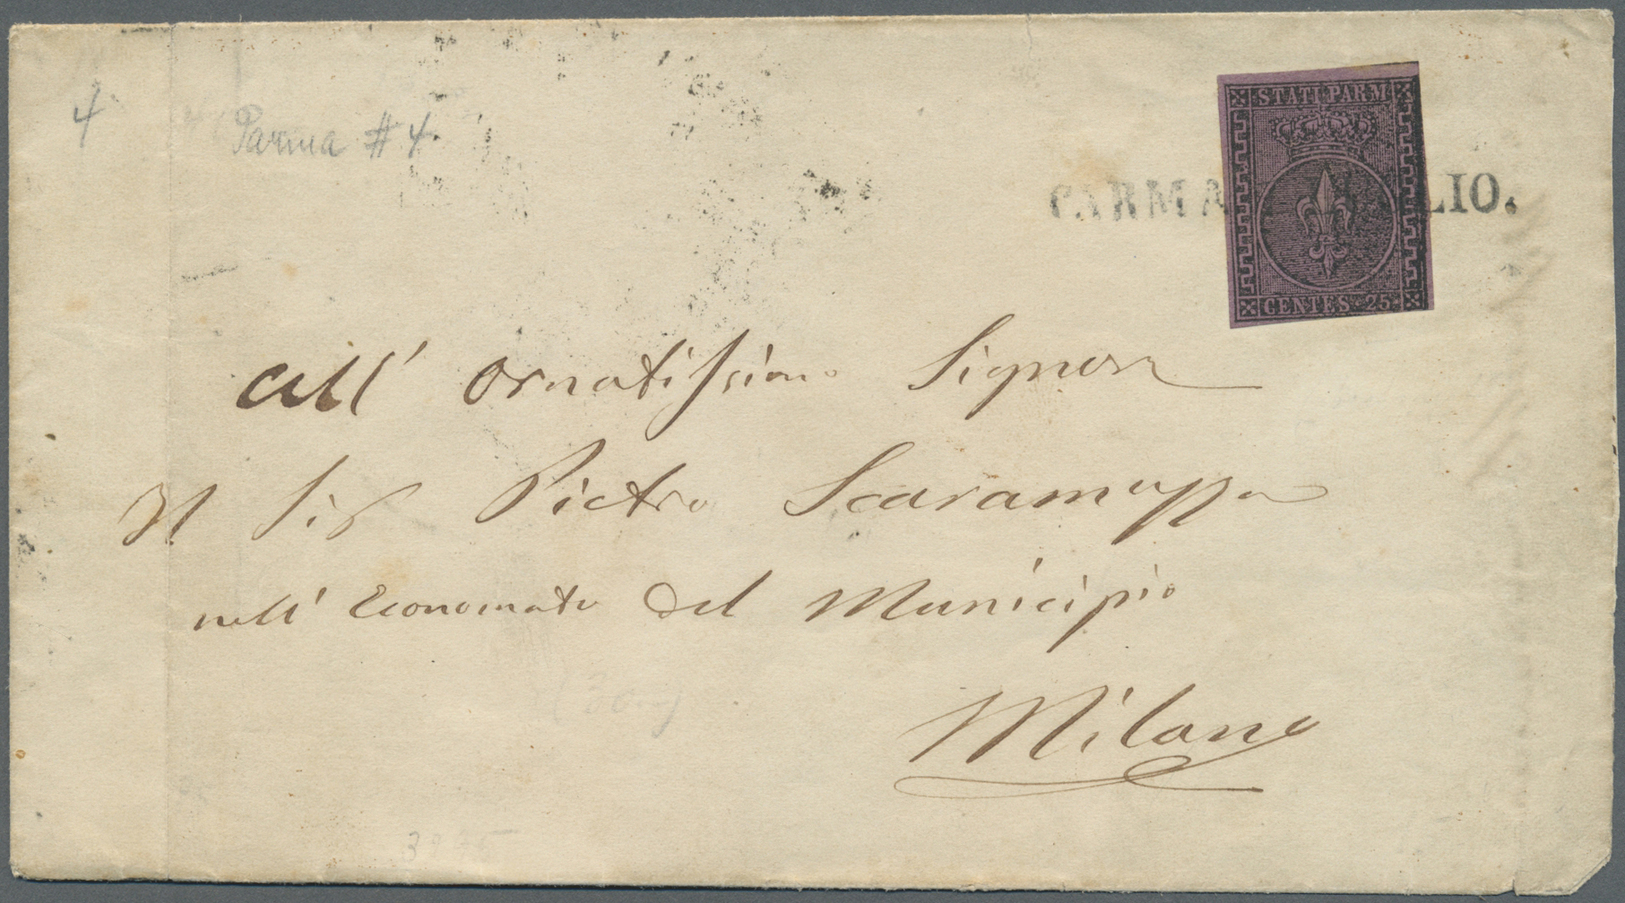 4
Parma # 4.
STATI PARM.
PARMA LIO.
CENTES. 25
All' Ornatissimo Signor
Il Sig Pietro Scaramuzza
nell' Economato del Municipio
Milano